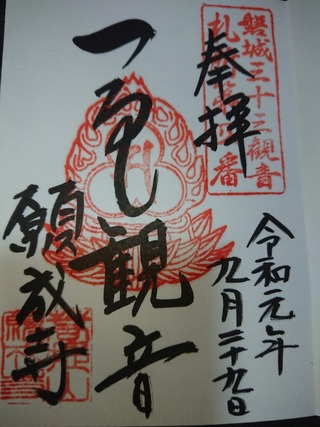 奉拝
磐城三十三観音
札所第
番
令和元年
九月二十九日
観音
願成寺